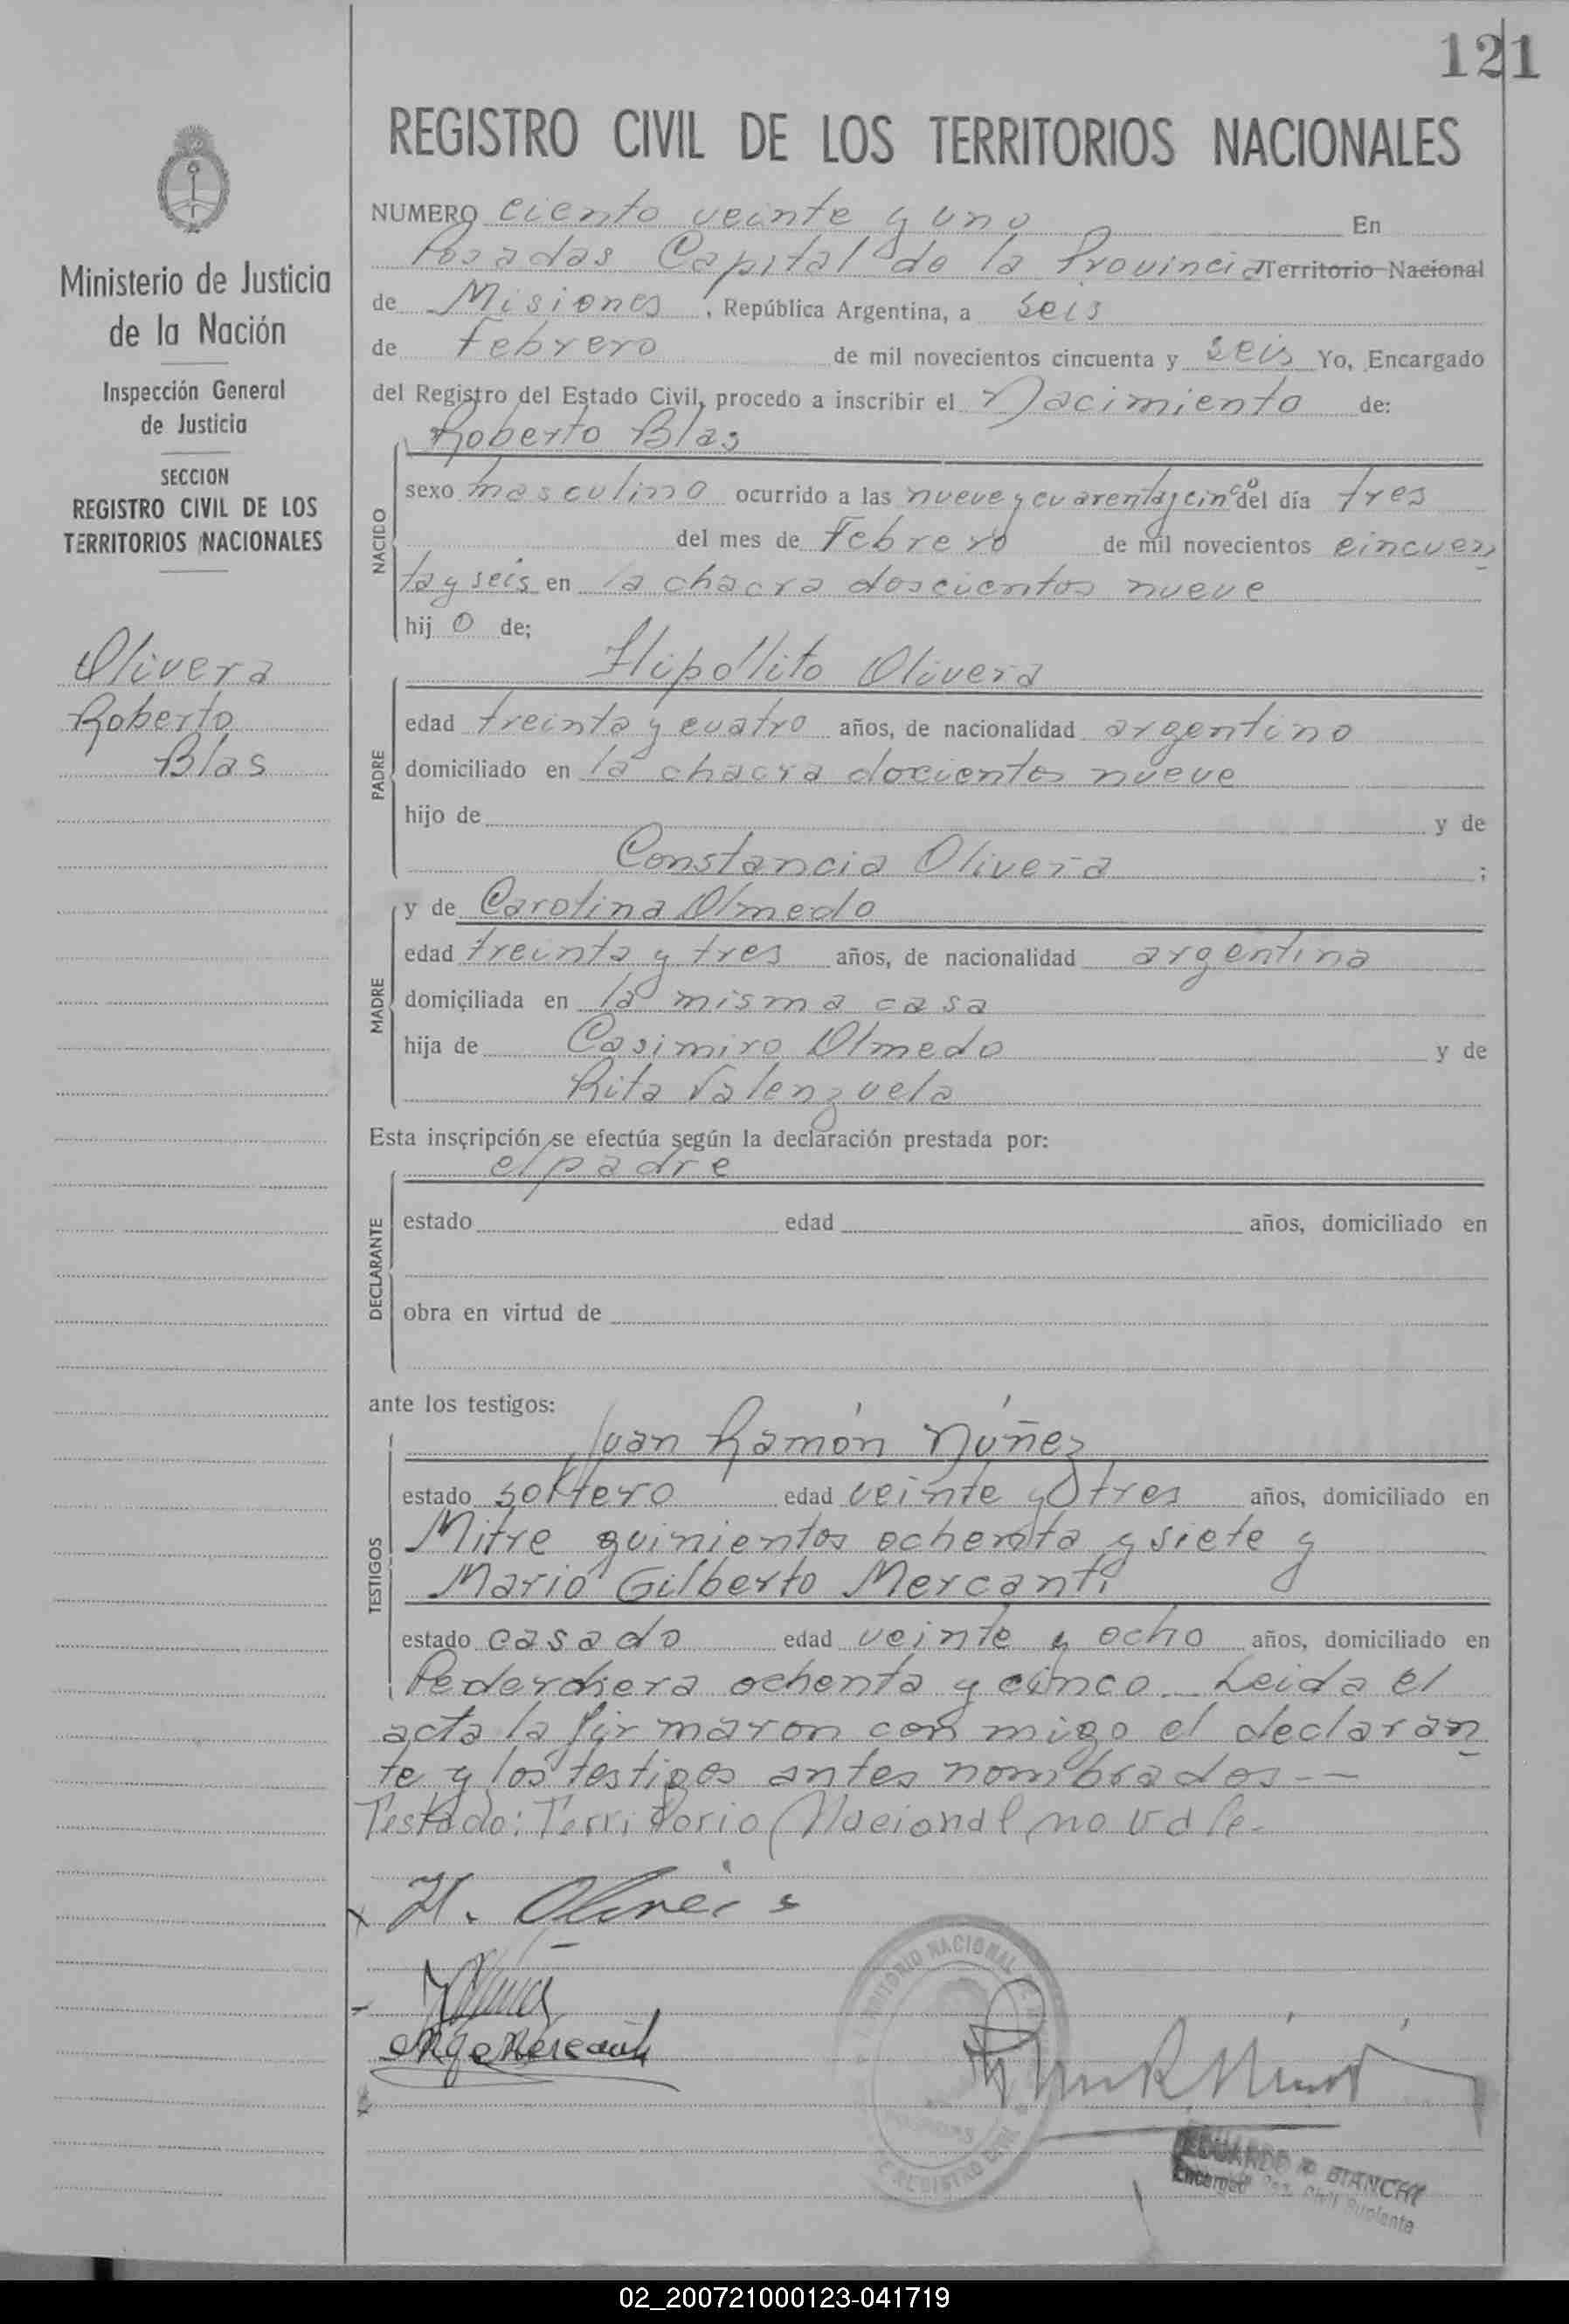 121
REGISTRO CIVIL DE LOS TERRITORIOS NACIONALES
Ministerio de Justicia
de la Nación
Inspección General
de Justicia
SECCION
REGISTRO CIVIL DE LOS
TERRITORIOS NACIONALES
Olivera
Roberto
Blas
NUMERO ciento veinte y uno En
Posadas Capital de la Provincia Territorio Nacional
de Misiones, República Argentina, a seis
de Febrero de mil novecientos cincuenta y seis Yo, Encargado
del Registro del Estado Civil, procedo a inscribir el Nacimiento de:
Roberto Blas
NACIDO
sexo masculino ocurrido a las nueve y cuarenta y cinco del día tres
del mes de Febrero de mil novecientos cincuen
ta y seis en la chacra doscientos nueve
hijo de;
Hipollito Olivera
PADRE
edad treinta y cuatro años, de nacionalidad argentino
domiciliado en la chacra doscientos nueve
hijo de y de
Constancia Olivera ;
MADRE
y de Carolina Olmedo
edad treinta y tres años, de nacionalidad argentina
domiciliada en la misma casa
hija de Casimiro Olmedo y de
Rita Valenzuela
Esta inscripción se efectúa según la declaración prestada por:
el padre
DECLARANTE
estado edad años, domiciliado en
obra en virtud de
ante los testigos:
Juan Ramón Núñez
TESTIGOS
estado soltero edad veinte y tres años, domiciliado en
Mitre quinientos ochenta y siete y
Mario Gilberto Mercanti
estado casado edad veinte y ocho años, domiciliado en
Pederchera ochenta y cinco. Leida el
acta la firmaron con migo el declaran
te y los testigos antes nombrados--
Testado: Territorio Nacional no vale.
H. Olivera
EDUARDO R BIANCHI
Encargado Reg. Civil Suplente
02_200721000123-041719